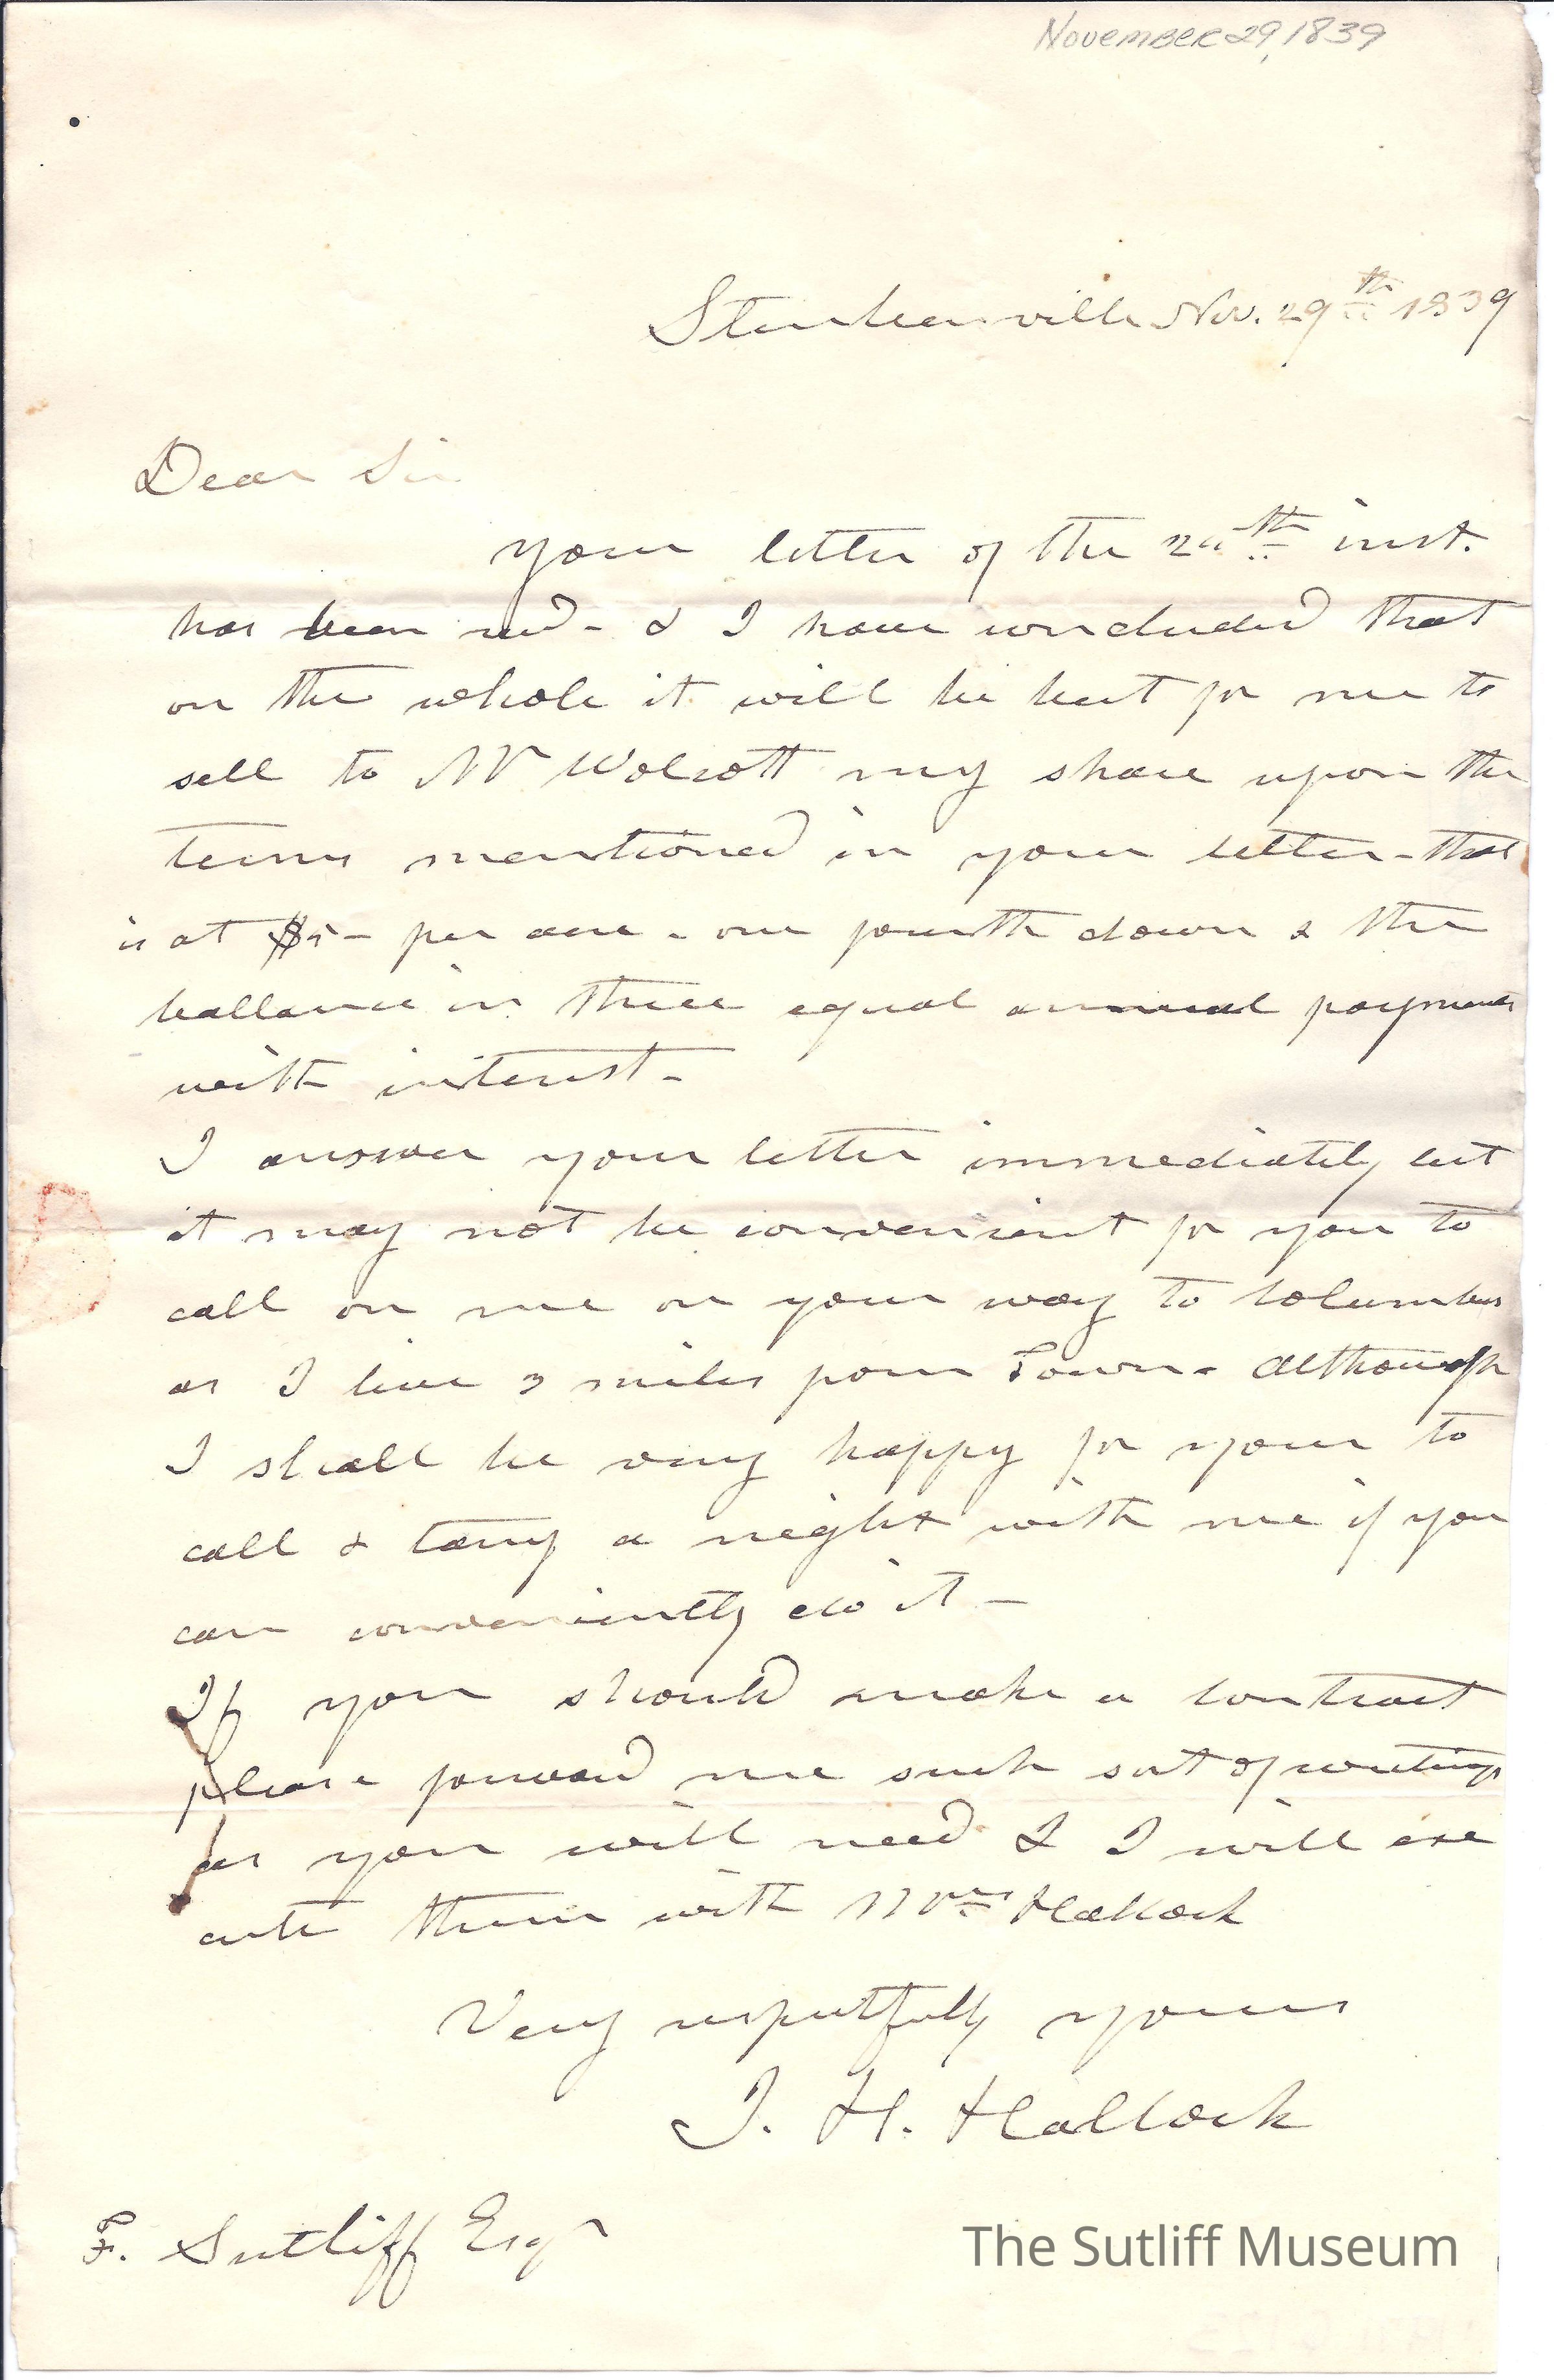 November 29, 1839
Steubenville Nov. 29th 1839
Dear Sir
your letter of the inst.
has been recd - & I have concluded that
on the whole it will be best for me to
sell to Mr Wolcott my share upon the
terms mentioned in your letter - that
is at $5 - per acre - one fourth down & the
ballance in three equal annual payments
with interest -
I answer your letter immediately
it may not be convenient for you to
call on me on your way to Columbus
as I live 3 miles from Town - although
I shall be very happy for you to
call & tarry a night with me if you
can conveniently do it -
If you should make a contract
please forward me such sort of writings
as you will need & I will exe
cute them with Mrs Hallock
Very respectfully yours
J. H. Hallock
F. Sutliff Esqr
The Sutliff Museum